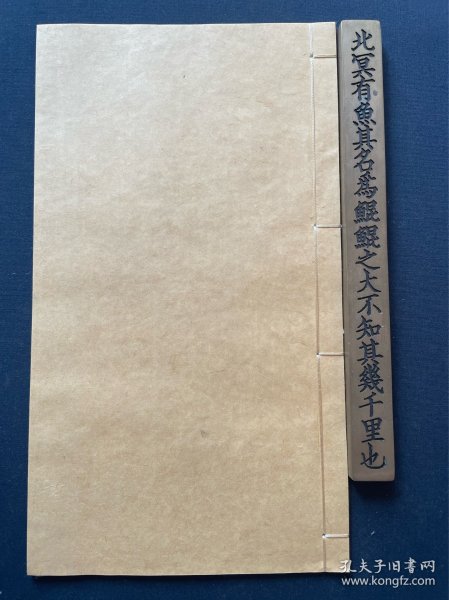 北冥有魚其名爲鯤鯤之大不知其幾千里也
孔夫子旧书网
www.kongfz.com